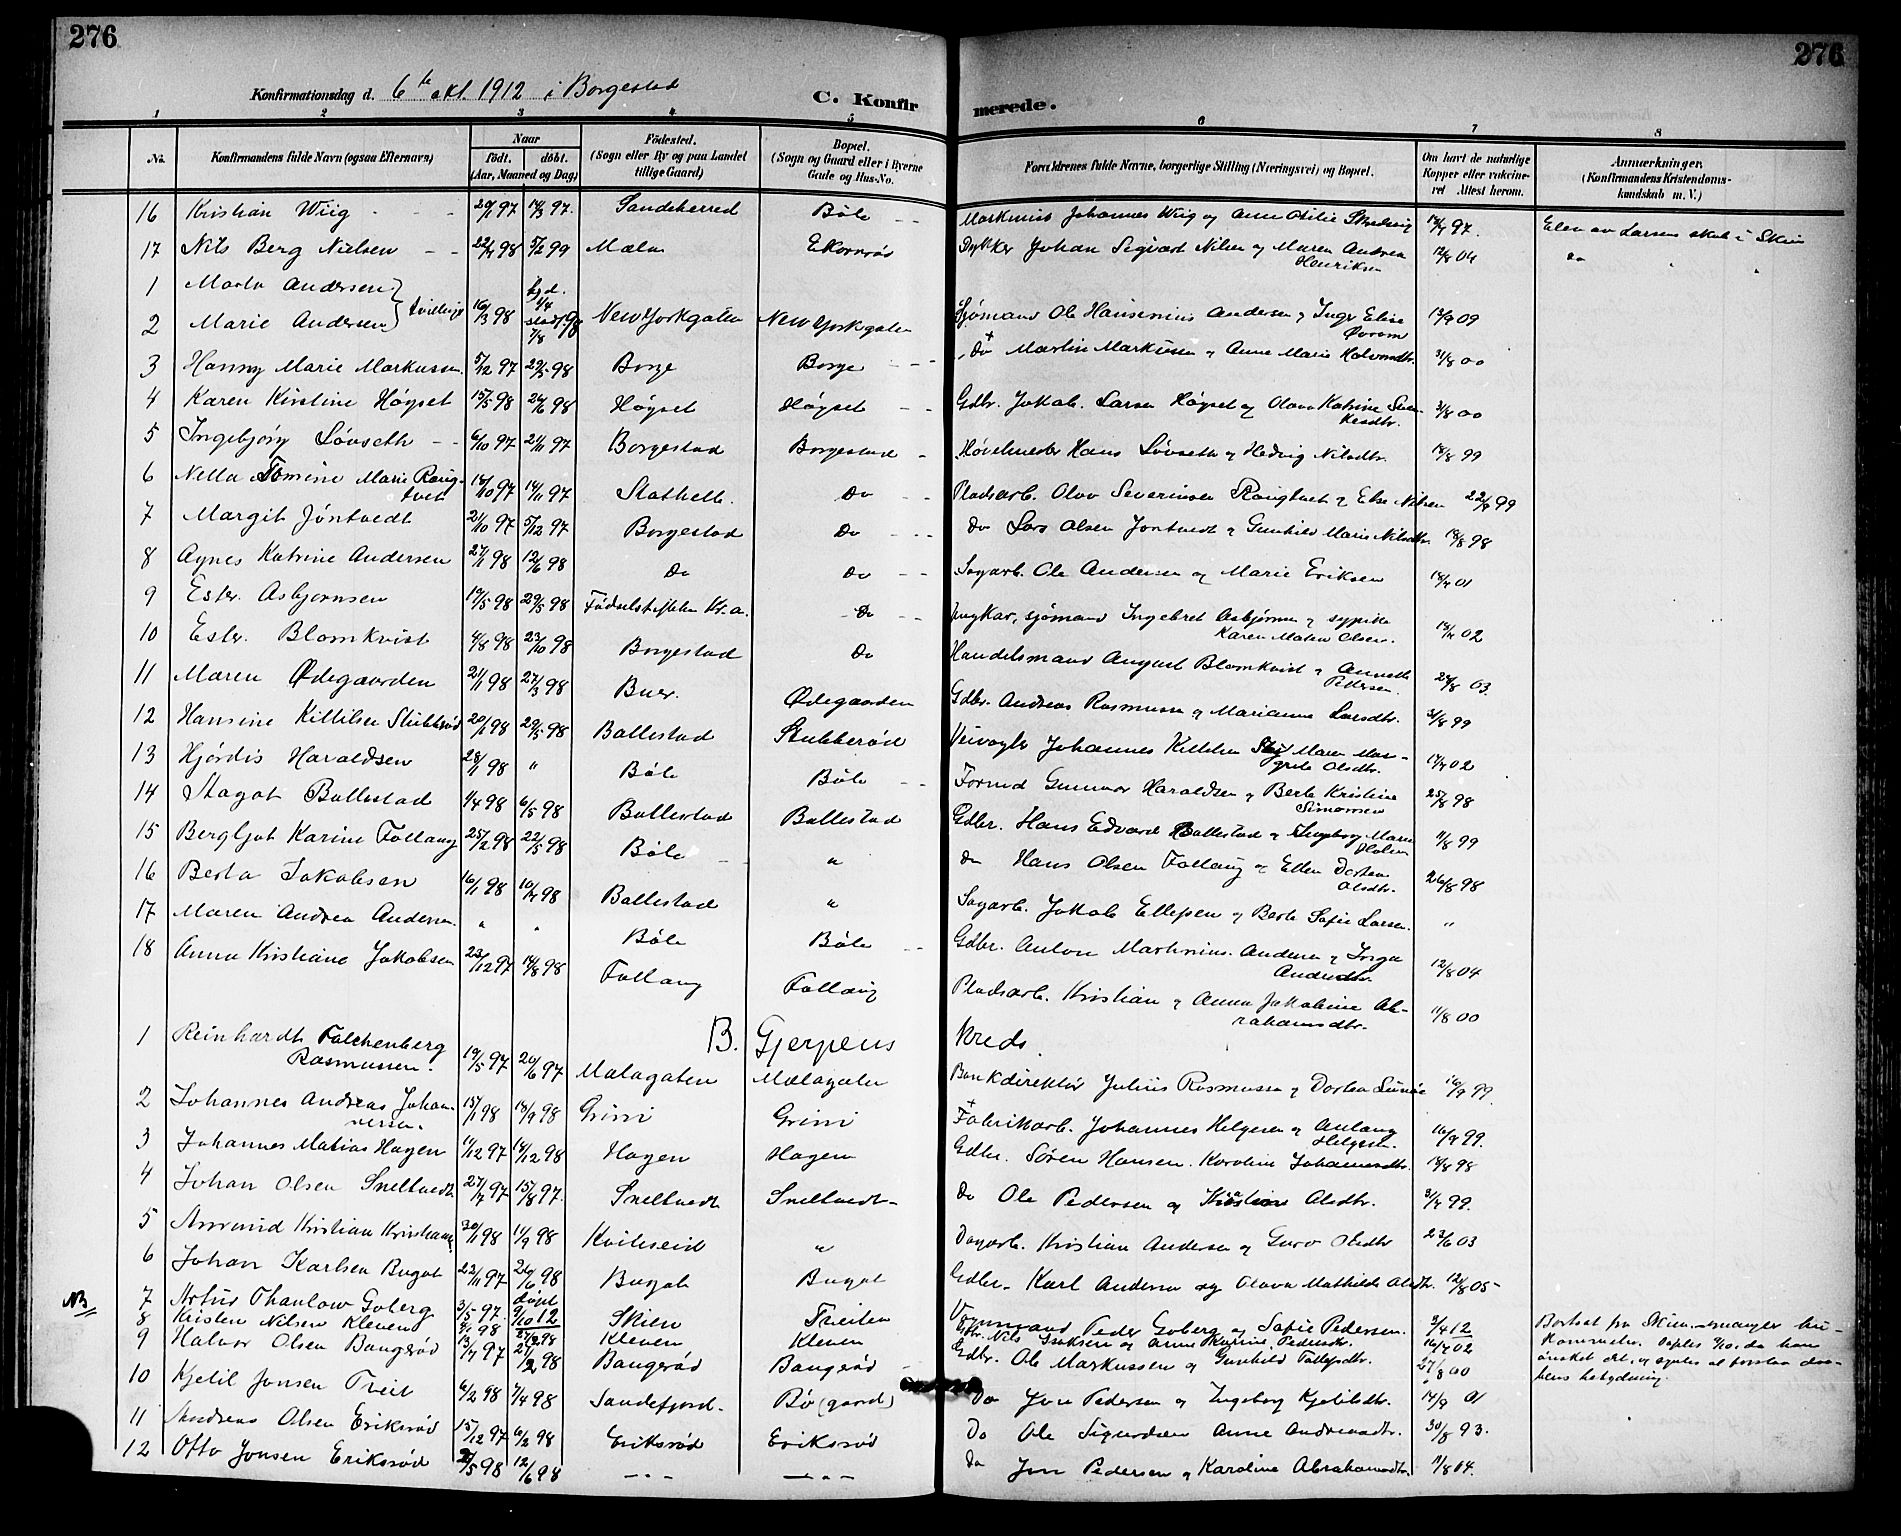 276
276
Konfirmationsdag d. 6te okt. 1912 i Borgestad
C. Konfirmerede.
1 2 3 4 5 6 7 8
No.
Konfirmandens fulde Navn (ogsaa Efternavn)
Naar
födt. döbt.
(Aar, Maaned og Dag)
Födested.
(Sogn eller By og paa Landet tillige Gaard)
Bopæl.
(Sogn og Gaard eller i Byerne Gade og Hus-No.
Forældrenes fulde Navne, borgerlige Stilling (Næringsvei) og Bopæl.
Om havt de naturlige Kopper eller vakcineret Attest herom.
Anmærkninger.
(Konfirmandens Kristendomskundskab m. V.)
16 Kristian Wiig 97 14/3 97. Sandeherred Böle Johannes Wiig og 97. Elev av Larsens skole i Skien
17 Nils Berg Nielsen 22/4 98 5/2 99 Mæla Ekornrød Johan Sigvart Nilsen og Maren Andrea Henriksen 12/8 04 do
1 Marta Andersen } tvillinger
2 Marie Andersen 16/3 98 hjd. 1/4 stadf. 7/8 98 New Yorkgaten New Yorkgaten Sjømand Ole Hansenius Andersen og Inga Elise 13/9 09
3 Hanny Marie Markussen 5/12 97 29/5 98 Borge Borge do Martin Markussen og Anne Marie Halvorsdtr. 31/8 00
4 Karen Kirstine Høgset 15/5 98 26/6 98 Høgset Høgset Gdbr. Jakob Larsen Høgset og Olava Katrine 3/8 00
5 Ingebjörg Lövseth 6/10 97 21/11 97 Borgestad Borgestad Høvelmester Hans Lövseth og Hedvig Nilsdtr. 18/8 99
6 Nella Tomine Marie Raugtvet 14/10 97 14/11 97 Stathelle. Do Pladsarb. Olav Severinsen Raugtvet og Else Nilsen 22/9 99
7 Margit Jöntvedt 21/10 97 5/12 97 Borgestad Do do Lars Olsen Jöntvedt og Gunhild Marie Nilsdtr. 18/8 98
8 Agnes Katrine Andersen 27/1 98 12/6 98 Do Do Sagarb. Ole Andersen og Marie Eriksen 01
9 Ester Asbjørnsen 19/5 98 29/5 98 Födselsstiftelsen Kr.a. Do Ungkar, sjömand Ingebret Asbjørnsen og sypike Karen Olsen. 02
10 Ester Blomkvist 4/8 98 23/10 98 Borgestad Do Handelsmand August Blomkvist og Annette Pedersen. 24/8 03
11 Maren Ødegaarden 21/1 98 27/3 98 Buer. Ødegaarden Gdbr. Andreas Rasmussen og Marianne Larsdtr. 31/8 99
12 Hansine Kittilsen Stubberød 98 29/5 98 Ballestad Stubberød Veivogter Johannes Kittilsen og Maren Margrete Olsdtr. 02
13 Hjördis Haraldsen 28/1 98 " Böle Böle Formd Gunnar Haraldsen og Berte Kristine Simonsen 25/8 98
14 Aagot Ballestad 1/4 98 6/5 98 Ballestad Ballestad Gdbr. Hans Edvard Ballestad og Ingeborg Marie 11/8 99
15 Bergljot Karine Follaug 25/2 98 22/5 98 Böle " do Hans Olsen Follaug og Ellen Dortea Olsdtr. 26/8 98
16 Berta Jakobsen 16/1 98 10/4 98 Ballestad " Sagarb. Jakob Ellefsen og Berte Sofie Larsen. "
17 Maren Andrea Andersen " " Böle Böle Gdbr. Anton Martinius Andersen og Inga Andersdtr. 12/8 04
18 Anna Kristiane Jakobsen 23/12 97 14/8 98 Follaug Follaug Pladsarb. Kristian og Anna Jakobine Abrahamsdtr. 11/8 00
B. Gjerpens kreds.
1 Reinhardt Falchenberg Rasmussen. 19/5 97 20/6 97 Mælagaten Mælagaten Bankdirektör Julius Rasmussen og Dortea 16/9 99.
2 Johannes Andreas Johannessen. 15/1 98 98 Grini Grini Fabrikarb. Johannes Helgesen og Anlaug Helgesen. 16/9 99.
3 Johannes Matias Hagen 11/12 97 98 Hagen Hagen Gdbr. Sören Hansen. Karoline Johannesdtr. 98
4 Johan Olsen Snelltvedt 27/7 97 15/8 97. Snelltvedt Snelltvedt do Ole Pedersen og Kristine Olsdtr. 99.
5 Amund Kristian Kristiansen 30/1 98 11/9 98 Kviteseid " Dagarb. Kristian Andersen og Guro Olsdtr 23/6 03
6 Johan Karlsen Bugot 22/11 97 26/6 98 Bugot Bugot Gdbr. Karl Andersen og Olava Mathilde Olsdtr. 12/8 05
NB 7 Artur Thaulow Goberg 3/5 97 döpt 9/10 12 Skien Treiten Vognmand Peder Goberg og Sofie Pedersen. 3/4 12 Bortsat fra Skien Döptes 9/10, da han önsket det, og syntes at forstaa daabens betydning.
8 Kristen Nilsen Kleven 98 98 Kleven Kleven Gdbr. Nils Isaksen og Anne Pedersdtr. 02
9 Halvor Olsen Baugeröd 13/7 97 98 Baugeröd Baugeröd Gdbr. Ole Markussen og Gunhild Tollefsdtr. 27/8 00
10 Kjetil Jonsen Treit 6/2 98 98 Sandefjord. Bö (gaard) Do Jon Pedersen og Ingeborg Kjetilsdtr. 14/9 01
11 Andreas Olsen Eriksröd 15/12 97 6/2 98 Eriksröd Eriksröd Do Ole Sigurdsen Anne Andreasdtr. 30/8 93.
12 Otto Jonsen Eriksröd 5 98 12/6 98 — " — — " — Do Jon Pedersen og Karoline Abrahamsdtr. 11/8 04.